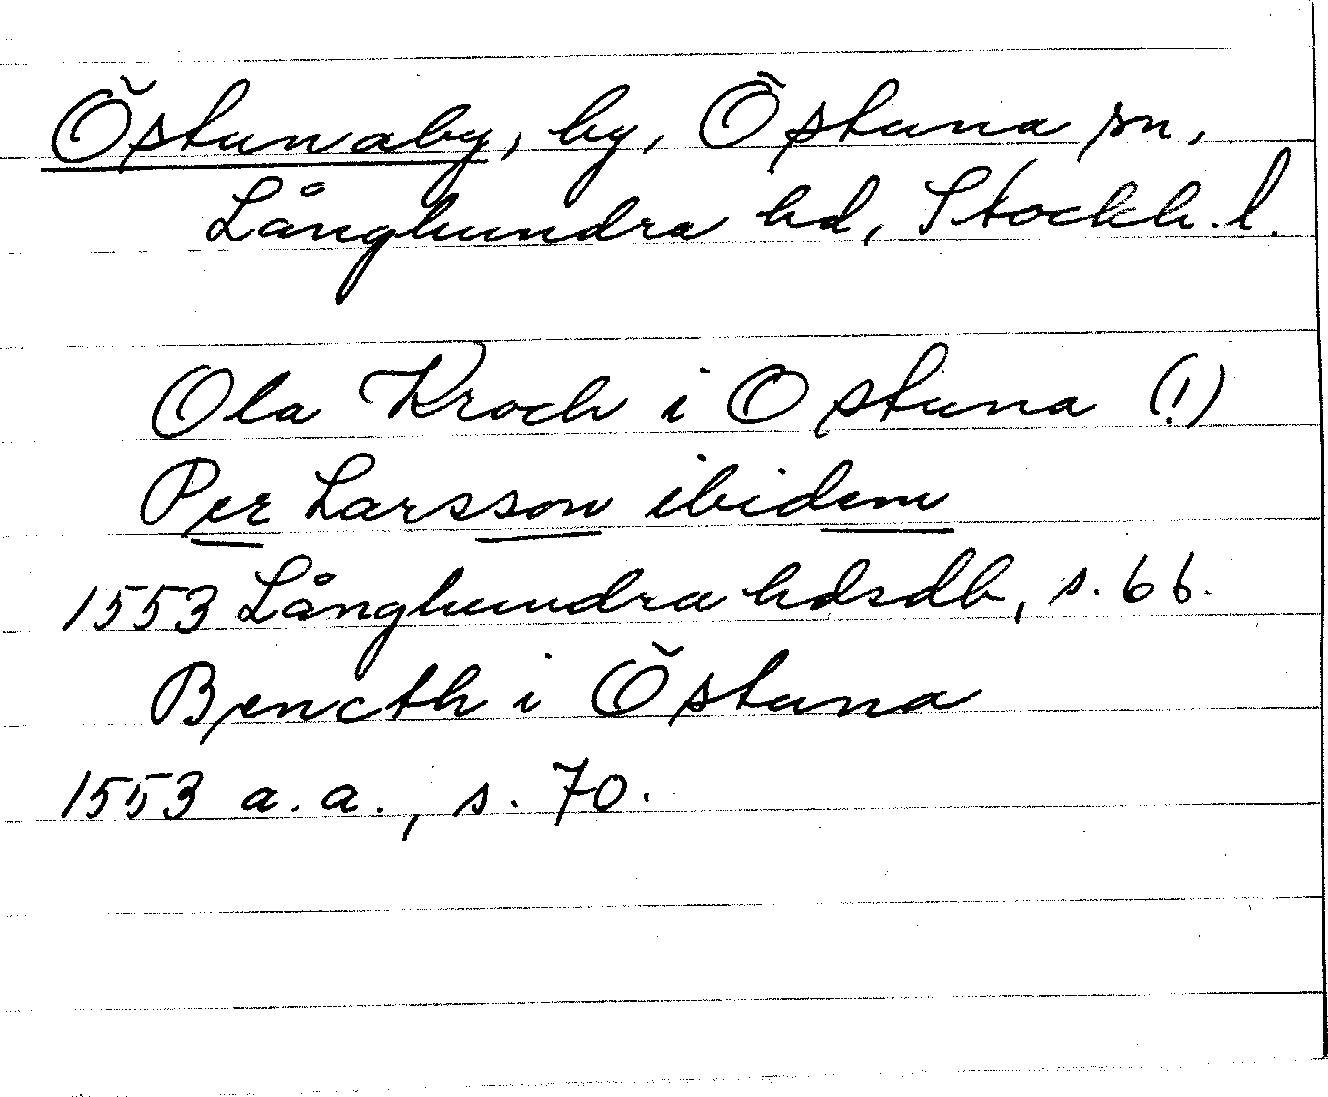 Östunaby, by, Östuna sn,
Långhundra hd, Stockh. l.
Ola Kroch i Ostuna (!)
Per Larsson ibidem
1553 Långhundra hdsdb, s. 66.
Bencth i Östuna
1553 a.a., s. 70.